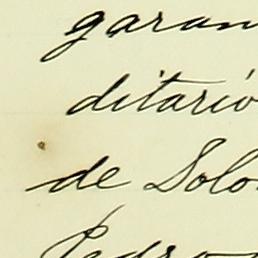 garan
ditario
de Solo
Pedro